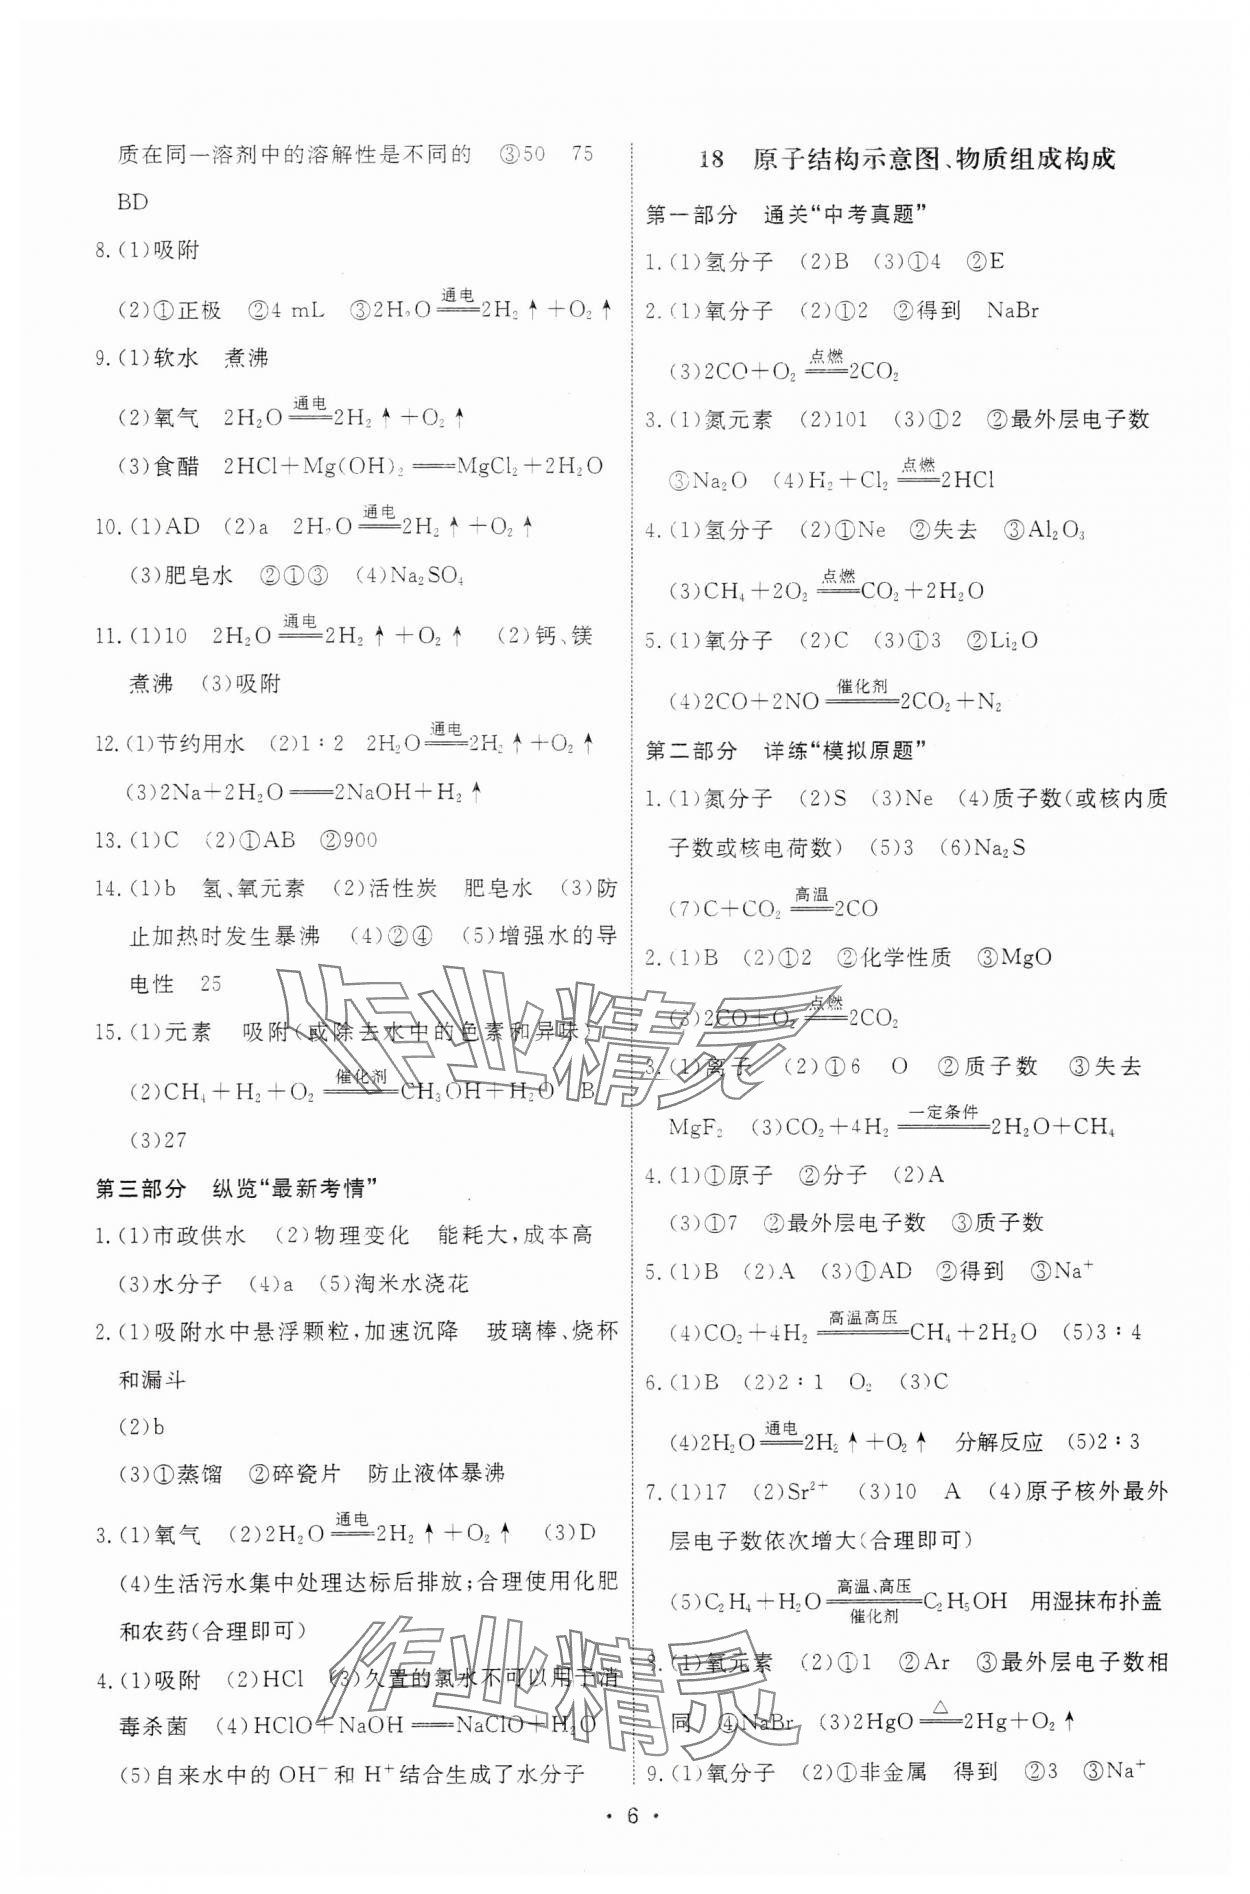 质在同一溶剂中的溶解性是不同的　③50　75
BD
8.(1)吸附
(2)①正极　②4 mL　③2H₂O ══通电══ 2H₂↑+O₂↑
9.(1)软水　煮沸
(2)氧气　2H₂O ══通电══ 2H₂↑+O₂↑
(3)食醋　2HCl+Mg(OH)₂ ══ MgCl₂+2H₂O
10.(1)AD　(2)a　2H₂O ══通电══ 2H₂↑+O₂↑
(3)肥皂水　②①③　(4)Na₂SO₄
11.(1)10　2H₂O ══通电══ 2H₂↑+O₂↑　(2)钙、镁
煮沸　(3)吸附
12.(1)节约用水　(2)1∶2　2H₂O ══通电══ 2H₂↑+O₂↑
(3)2Na+2H₂O ══ 2NaOH+H₂↑
13.(1)C　(2)①AB　②900
14.(1)b　氢、氧元素　(2)活性炭　肥皂水　(3)防
止加热时发生暴沸　(4)②④　(5)增强水的导
电性　25
15.(1)元素　吸附(或除去水中的色素和异味)
(2)CH₄+H₂+O₂ ══催化剂══ CH₃OH+H₂O　B
(3)27
第三部分　纵览“最新考情”
1.(1)市政供水　(2)物理变化　能耗大,成本高
(3)水分子　(4)a　(5)淘米水浇花
2.(1)吸附水中悬浮颗粒,加速沉降　玻璃棒、烧杯
和漏斗
(2)b
(3)①蒸馏　②碎瓷片　防止液体暴沸
3.(1)氧气　(2)2H₂O ══通电══ 2H₂↑+O₂↑　(3)D
(4)生活污水集中处理达标后排放;合理使用化肥
和农药(合理即可)
4.(1)吸附　(2)HCl　(3)久置的氯水不可以用于消
毒杀菌　(4)HClO+NaOH ══ NaClO+H₂O
(5)自来水中的 OH⁻和 H⁺结合生成了水分子
18　原子结构示意图、物质组成构成
第一部分　通关“中考真题”
1.(1)氢分子　(2)B　(3)①4　②E
2.(1)氧分子　(2)①2　②得到　NaBr
(3)2CO+O₂ ══点燃══ 2CO₂
3.(1)氮元素　(2)101　(3)①2　②最外层电子数
③Na₂O　(4)H₂+Cl₂ ══点燃══ 2HCl
4.(1)氢分子　(2)①Ne　②失去　③Al₂O₃
(3)CH₄+2O₂ ══点燃══ CO₂+2H₂O
5.(1)氧分子　(2)C　(3)①3　②Li₂O
(4)2CO+2NO ══催化剂══ 2CO₂+N₂
第二部分　详练“模拟原题”
1.(1)氮分子　(2)S　(3)Ne　(4)质子数(或核内质
子数或核电荷数)　(5)3　(6)Na₂S
(7)C+CO₂ ══高温══ 2CO
2.(1)B　(2)①2　②化学性质　③MgO
(3)2CO+O₂ ══点燃══ 2CO₂
3.(1)离子　(2)①6　O　②质子数　③失去
MgF₂　(3)CO₂+4H₂ ══一定条件══ 2H₂O+CH₄
4.(1)①原子　②分子　(2)A
(3)①7　②最外层电子数　③质子数
5.(1)B　(2)A　(3)①AD　②得到　③Na⁺
(4)CO₂+4H₂ ══高温高压══ CH₄+2H₂O　(5)3∶4
6.(1)B　(2)2∶1　O₂　(3)C
(4)2H₂O ══通电══ 2H₂↑+O₂↑　分解反应　(5)2∶3
7.(1)17　(2)Sr²⁺　(3)10　A　(4)原子核外最外
层电子数依次增大(合理即可)
(5)C₂H₄+H₂O ══高温、高压/催化剂══ C₂H₅OH　用湿抹布扑盖
8.(1)氧元素　(2)①1　②Ar　③最外层电子数相
同　④NaBr　(3)2HgO ══△══ 2Hg+O₂↑
9.(1)氧分子　(2)①非金属　得到　②3　③Na⁺
• 6 •
作业精灵
作业精灵